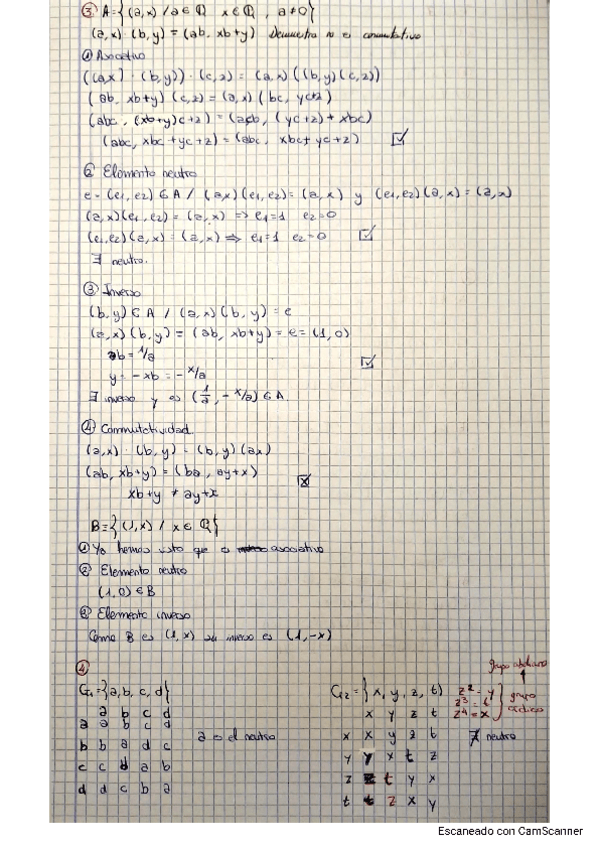 ③ A={(a,x) / a∈ℚ x∈ℚ, a≠0}
(a,x)·(b,y) = (ab, xb+y) Demuestra no es conmutativo
① Asociativo
((a,x)·(b,y))·(c,z) = (a,x)((b,y)(c,z))
(ab, xb+y)(c,z) = (a,x)(bc, yc+z)
(abc, (xb+y)c+z) = (acb, (yc+z)+xbc)
(abc, xbc+yc+z) = (abc, xbc+yc+z) ☑
② Elemento neutro
e = (e₁, e₂) ∈ A / (a,x)(e₁,e₂) = (a,x) y (e₁,e₂)(a,x) = (a,x)
(a,x)(e₁,e₂) = (a,x) ⇒ e₁=1 e₂=0
(e₁,e₂)(a,x) = (a,x) ⇒ e₁=1 e₂=0 ☑
∃ neutro.
③ Inverso
(b,y) ∈ A / (a,x)(b,y) = e
(a,x)(b,y) = (ab, xb+y) = e = (1,0)
ab = 1/a
y = -xb = -x/a ☑
∃ inverso y es (1/a, -x/a) ∈ A
④ Conmutatividad.
(a,x)·(b,y) = (b,y)(ax)
(ab, xb+y) = (ba, ay+x) ☒
xb+y ≠ ay+x
B={(1,x) / x∈ℚ}
① Ya hemos visto que es asociativo
② Elemento neutro
(1,0) ∈ B
③ Elemento inverso
Como B es (1,x) su inverso es (1,-x)
④
G₁={a,b,c,d}
a b c d
a a b c d
b b a d c
c c d a b
d d c b a
a es el neutro
grupo abeliano
G₂={x,y,z,t) z²=y
z³=t
z⁴=x
grupo cíclico
x y z t
x x y z t ∄ neutro
y y x t z
z z t y x
t t z x y
Escaneado con CamScanner